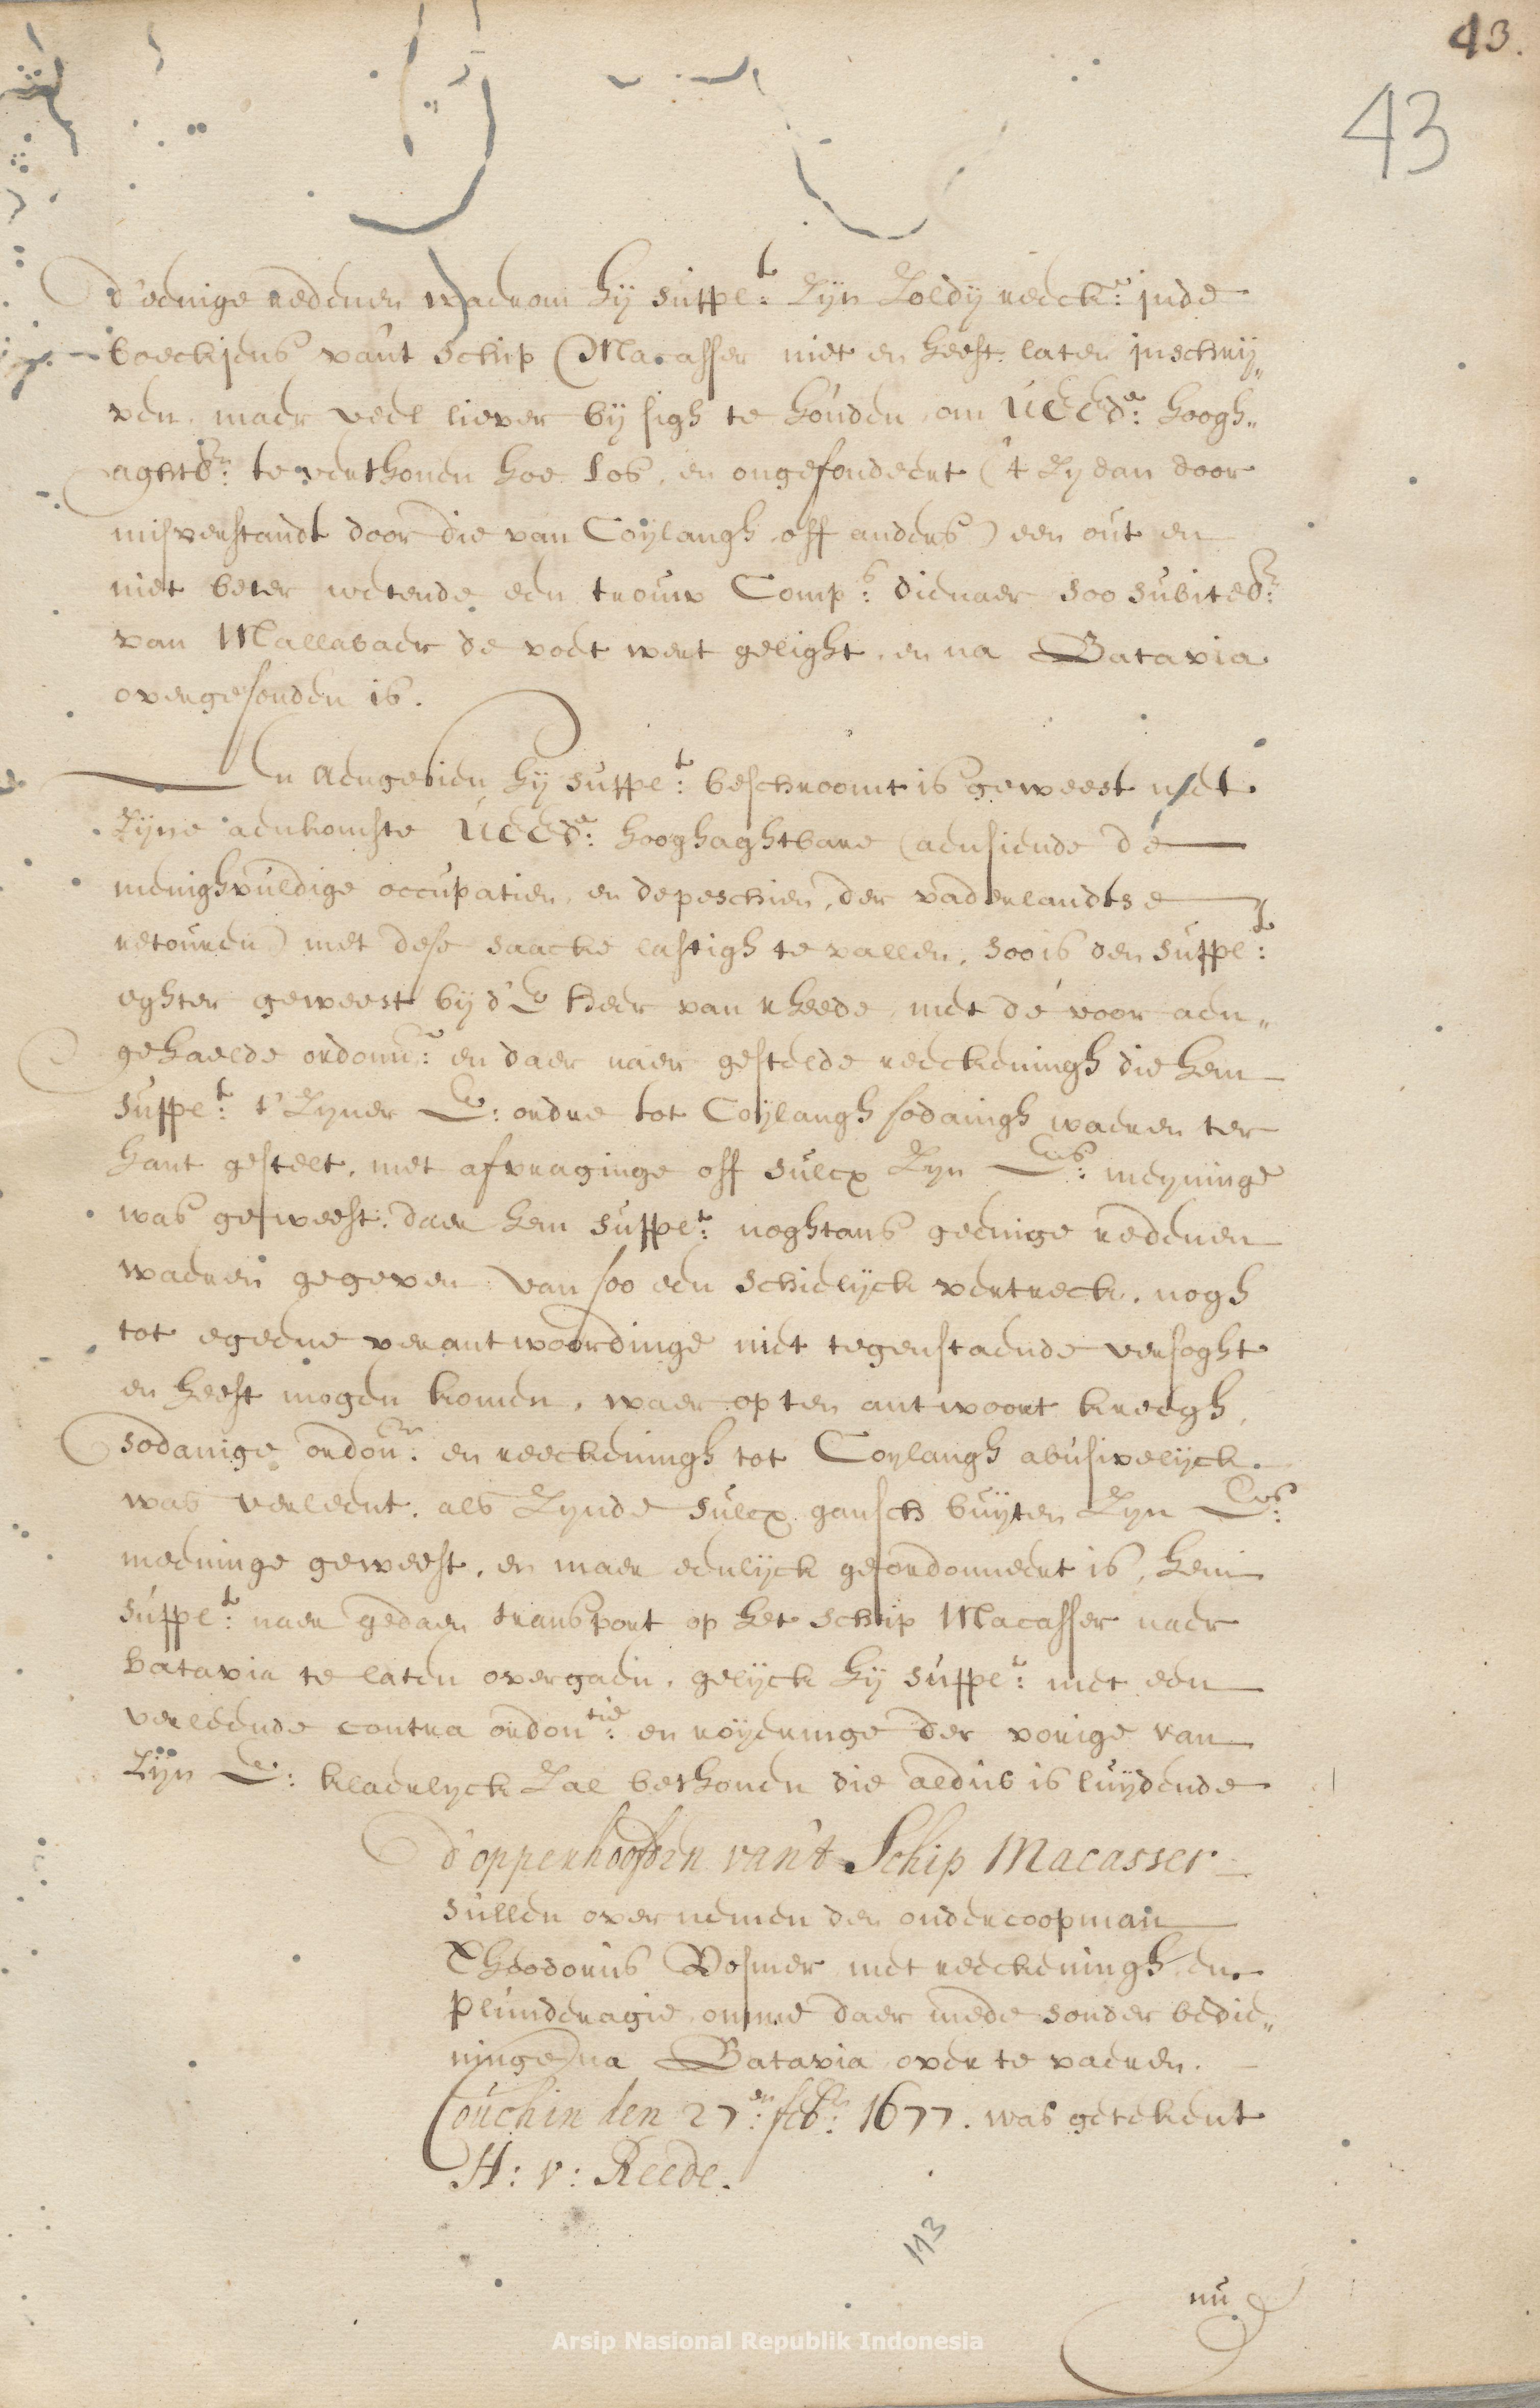 43.
43
d'eenige redenen waerom hij supplt: zijn soldij reeckr: inde
boeckjens van't schip Macasser niet en heeft laten inschrij„
ven, maer veel liever bij sigh te houden, om UEEde: hoogh„
aghtbr: te verthonen hoe los, en ongefondeert ('t zij dan door
misverstandt door die van Coylangh, off anders) een out en
niet beter wetende een trouw Comps: dienaer soo subited:
van Mallabaer de voet wert gelight, en na Batavia
overgesonden is.
En aengesien hij supplt: beschroomt is geweest met
zijne aenkomste UEEde: hooghaghtbare (aensiende de
menighvuldige occupatien, en depeschien, der vaderlandtse
retouren) met dese saacke lastigh te vallen, soo is den supplt:
eghter geweest bij d'E heer van rheede, met de voor aen„
gehaelde ordonn: en daer naer gestelde reeckeningh die hem
supplt: t' zijner E: ordre tot Coylangh sodanigh waeren ter
hant gestelt, met afvraginge off sulcx zijn Es: meyninge
was geweest, daer hem supplt: noghtans geenige redenen
waeren gegeven van soo een schielijck vertreck, nogh
tot egeene verantwoordinge niet tegenstaende versoght
en heeft mogen komen, waer op ten antwoort kreegh,
sodanige ordonr: en reeckeningh tot Coylangh abusivelijck
was verleent, als zynde sulcx gansch buijten zyn Es:
meeninge geweest, en maer eenlijck geordonneert is, hem
supplt: naer gedaen transport op het schip Macasser naer
batavia te laten overgaen, gelijck hij supplt: met een
verleende contra ordontie: en roijeringe der vorige van
zijn E: klaerlyck zal bethonen die aldus is luijdende
d'opperhoofden van't Schip Macasser
sullen overnemen den ondercoopman
Theodorus Vosmer met reeckeningh en
plunderagie, omme daer mede sonder bedie„
ninge na Batavia over te vaeren.
Couchin den 27en: febr: 1677. was getekent
H: v: Reede.
113
nu
Arsip Nasional Republik Indonesia